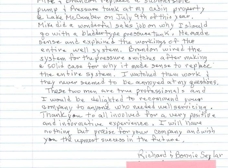 Mike & Brandon replaced a submersible
pump & Pressure tank at my cabin property
@ Lake McCumber on July 9th of this year.
Mike did a wonderful sales job on why I should
go with a bladder type pressure tank. He made
sense and explained the workings of the
entire well system. Brandon wired the
system for the pressure switches after making
a solid case for why it made sense to replace
the entire system. I watched them work &
they never seemed to be annoyed at my questions.
These two men are true professionals and
I would be delighted to recommend your
company to anyone who needed well servicing.
Thank you to all involved for a very positive
and informative experience. I will have
nothing but praise for your company and wish
you the upmost success in the future.
Richard & Bonnie